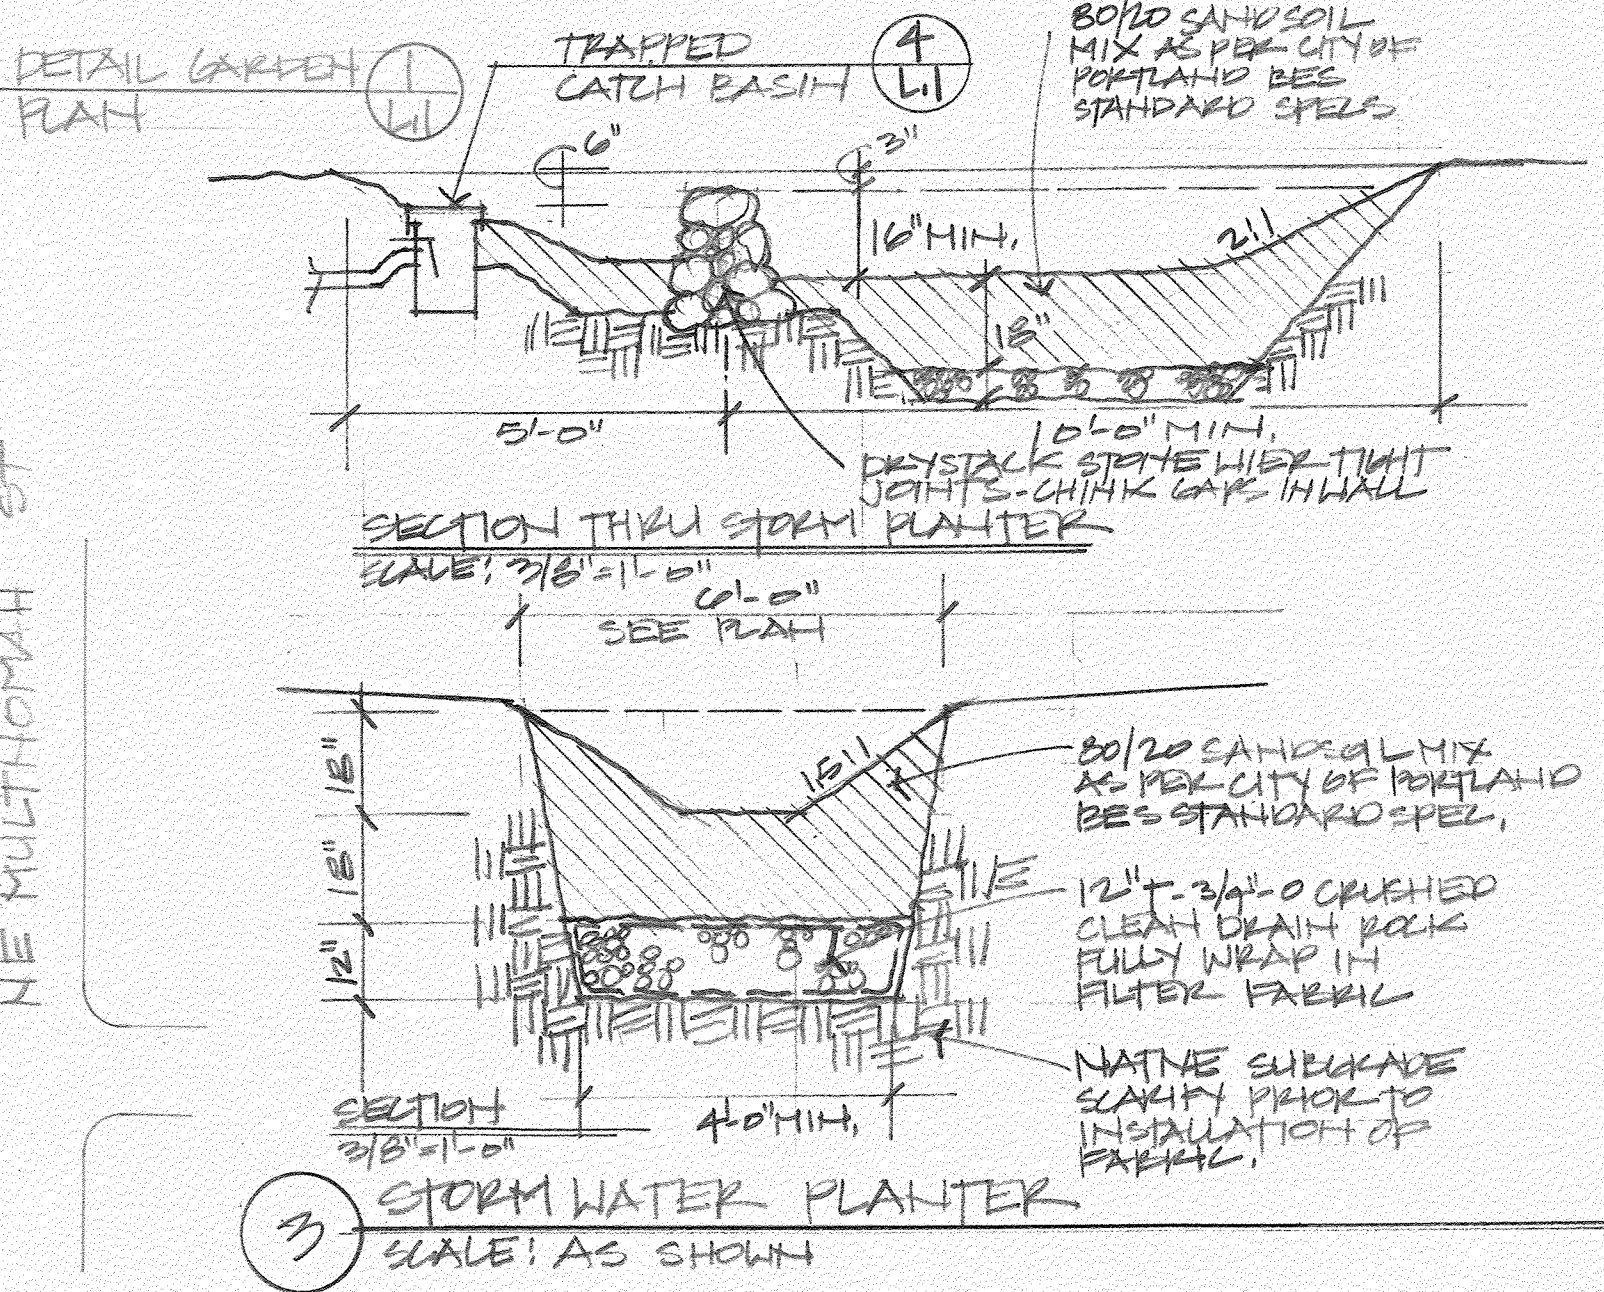 DETAIL GARDEN
PLAN
1
L.1
TRAPPED
CATCH BASIN
4
L.1
80/20 SANDSOIL
MIX AS PER CITY OF
PORTLAND BES
STANDARD SPECS
6"
3"
16" MIN.
2:1
18"
5'-0"
10'-0" MIN.
DRYSTACK STONE WIER TIGHT
JOINTS-CHINK GAPS IN WALL
SECTION THRU STORM PLANTER
SCALE: 3/8"=1'-0"
6'-0"
SEE PLAN
18"
18"
12"
1.5:1
80/20 SANDSOIL MIX
AS PER CITY OF PORTLAND
BES STANDARD SPEC.
12"+-3/4"-0 CRUSHED
CLEAN DRAIN ROCK
FULLY WRAP IN
FILTER FABRIC
NATIVE SUBGRADE
SCARIFY PRIOR TO
INSTALLATION OF
FABRIC.
4'-0" MIN.
SECTION
3/8"=1'-0"
3
STORM WATER PLANTER
SCALE: AS SHOWN
NE MULTNOMAH ST